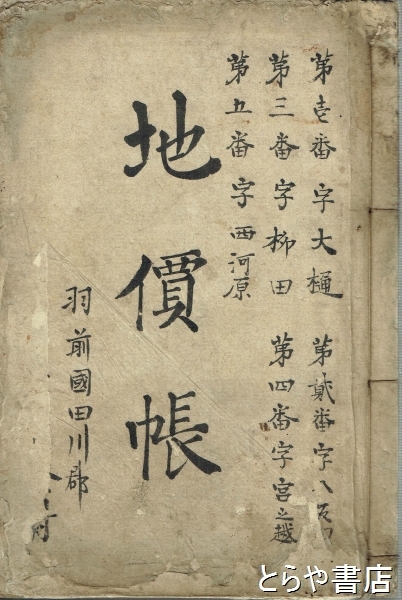 第壱番字大樋 第貳番字八
第三番字柳田 第四番字宮之越
第五番字西河原
地價帳
羽前國田川郡
とらや書店